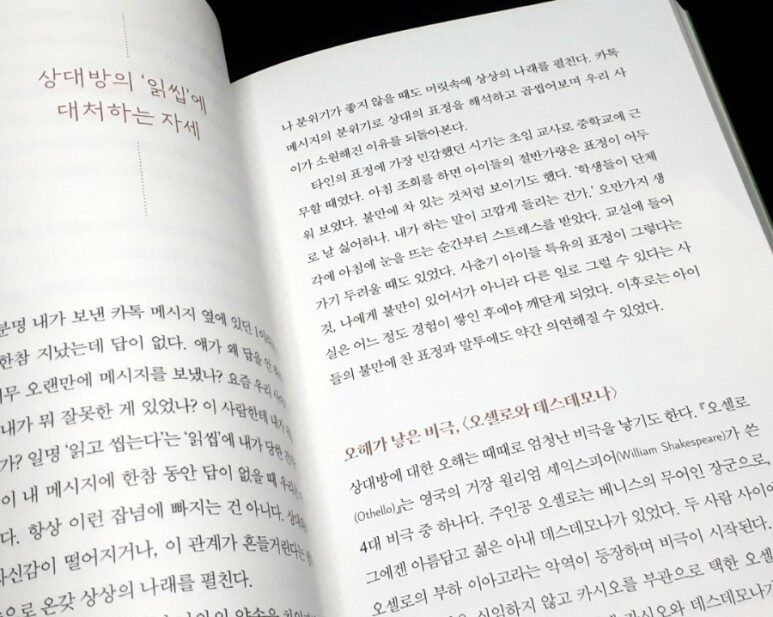 상대방의 '읽씹'에
대처하는 자세
분명 내가 보낸 카톡 메시지 옆에 있던
한참 지났는데 답이 없다. 얘가 왜 답을 안
오랜만에 메시지를 보냈나? 요즘 우리
내가 뭐 잘못한 게 있었나? 이 사람한테 내가
가? 일명 '읽고 씹는다'는 '읽씹'에 내가 당한
이 내 메시지에 한참 동안 답이 없을 때
다. 항상 이런 잡념에 빠지는 건 아니다.
자신감이 떨어지거나, 이 관계가 흔들거린다는
으로 온갖 상상의 나래를 펼친다.
나 분위기가 좋지 않을 때도 머릿속에 상상의 나래를 펼친다. 카톡
메시지의 분위기로 상대의 표정을 해석하고 곱씹어보며 우리 사
이가 소원해진 이유를 되돌아본다.
타인의 표정에 가장 민감했던 시기는 초임 교사로 중학교에 근
무할 때였다. 아침 조회를 하면 아이들의 절반가량은 표정이 어두
워 보였다. 불만에 차 있는 것처럼 보이기도 했다. '학생들이 단체
로 날 싫어하나. 내가 하는 말이 고깝게 들리는 건가.' 오만가지 생
각에 아침에 눈을 뜨는 순간부터 스트레스를 받았다. 교실에 들어
가기 두려울 때도 있었다. 사춘기 아이들 특유의 표정이 그렇다는
것, 나에게 불만이 있어서가 아니라 다른 일로 그럴 수 있다는 사
실은 어느 정도 경험이 쌓인 후에야 깨닫게 되었다. 이후로는 아이
들의 불만에 찬 표정과 말투에도 약간 의연해질 수 있었다.
오해가 낳은 비극, 〈오셀로와 데스데모나〉
상대방에 대한 오해는 때때로 엄청난 비극을 낳기도 한다. 『오셀로
(Othello)』는 영국의 거장 윌리엄 셰익스피어(William Shakespeare)가 쓴
4대 비극 중 하나다. 주인공 오셀로는 베니스의 무어인 장군으로,
그에겐 아름답고 젊은 아내 데스데모나가 있었다. 두 사람 사이에
오셀로의 부하 이아고라는 악역이 등장하며 비극이 시작된다.
신임하지 않고 카시오를 부관으로 택한 오셀
카시오와 데스데모나가